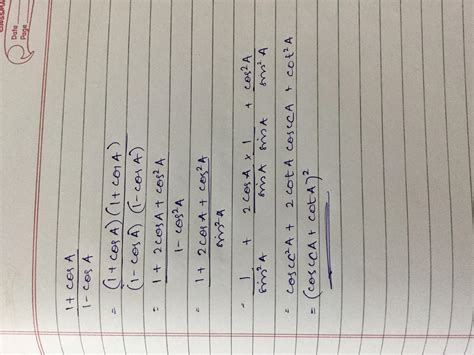 CLASSMATE
Date
Page
1 + cos A / 1 - cos A
= (1 + cos A) (1 + cos A) / (1 - cos A) (1 - cos A)
= 1 + 2 cos A + cos²A / 1 - cos²A
= 1 + 2 cos A + cos²A / sin²A
= 1 / sin²A + 2 cos A × 1 / sin A sin A + cos²A / sin²A
= cosec²A + 2 cot A cosec A + cot²A
= (cosec A + cot A)²